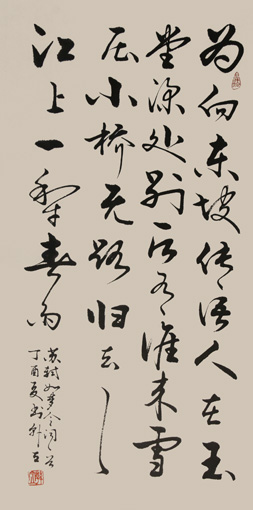 为向东坡传语人在玉
堂深处别后有谁来雪
压小桥无路归去
江上一犁春雨
苏轼如梦令词一首
丁酉夏